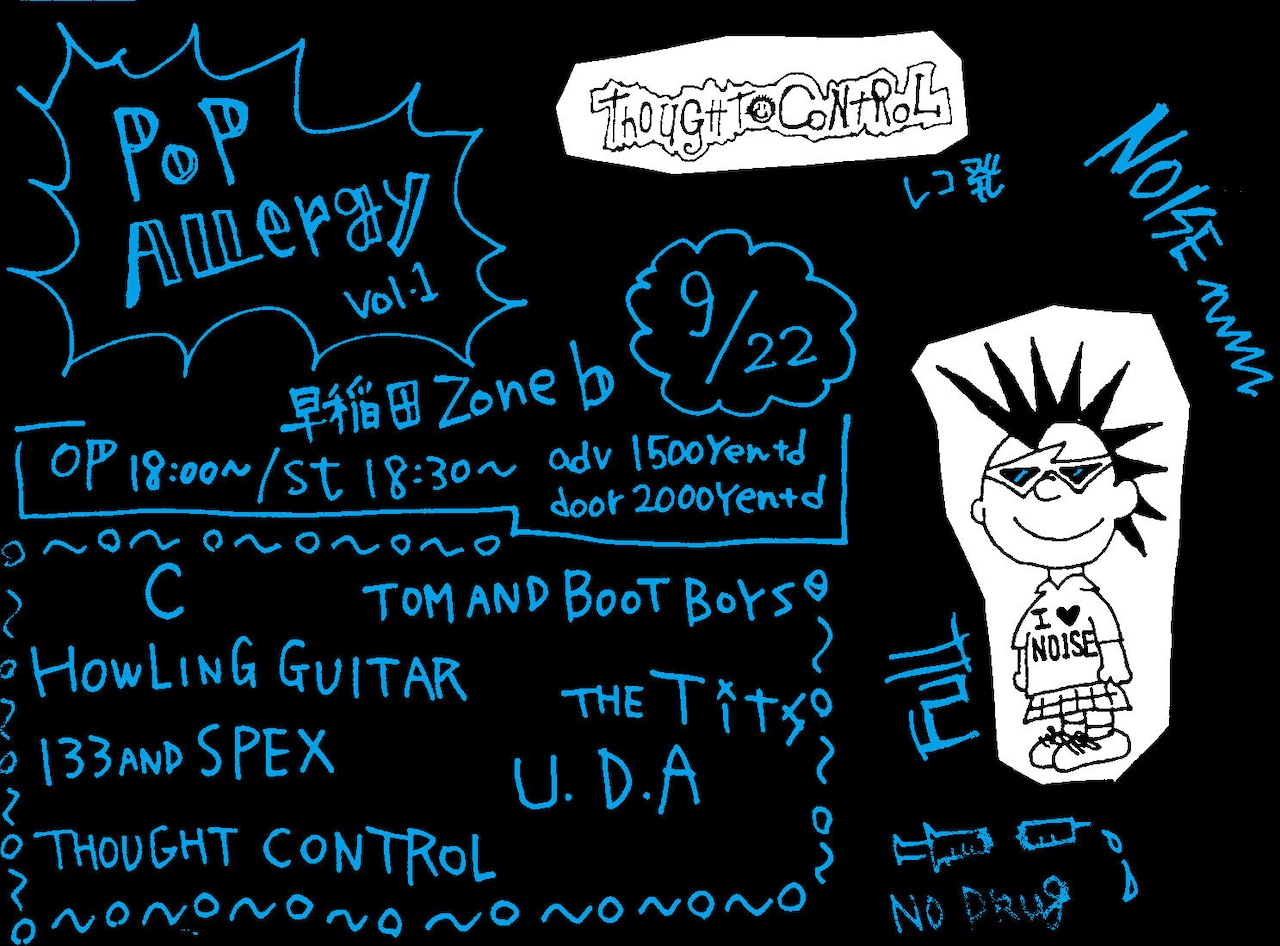 POP
Allergy
vol.1
THOUGHT CONTROL
レコ発
NOISE
9/22
早稲田 Zone b
OP 18:00~/St 18:30~
adv 1500Yen+d
door 2000Yen+d
C
TOM AND BOOT BOYS
HOWLING GUITAR
THE TiTs
133 AND SPEX
U.D.A
THOUGHT CONTROL
I ♥
NOISE
NO DRUg